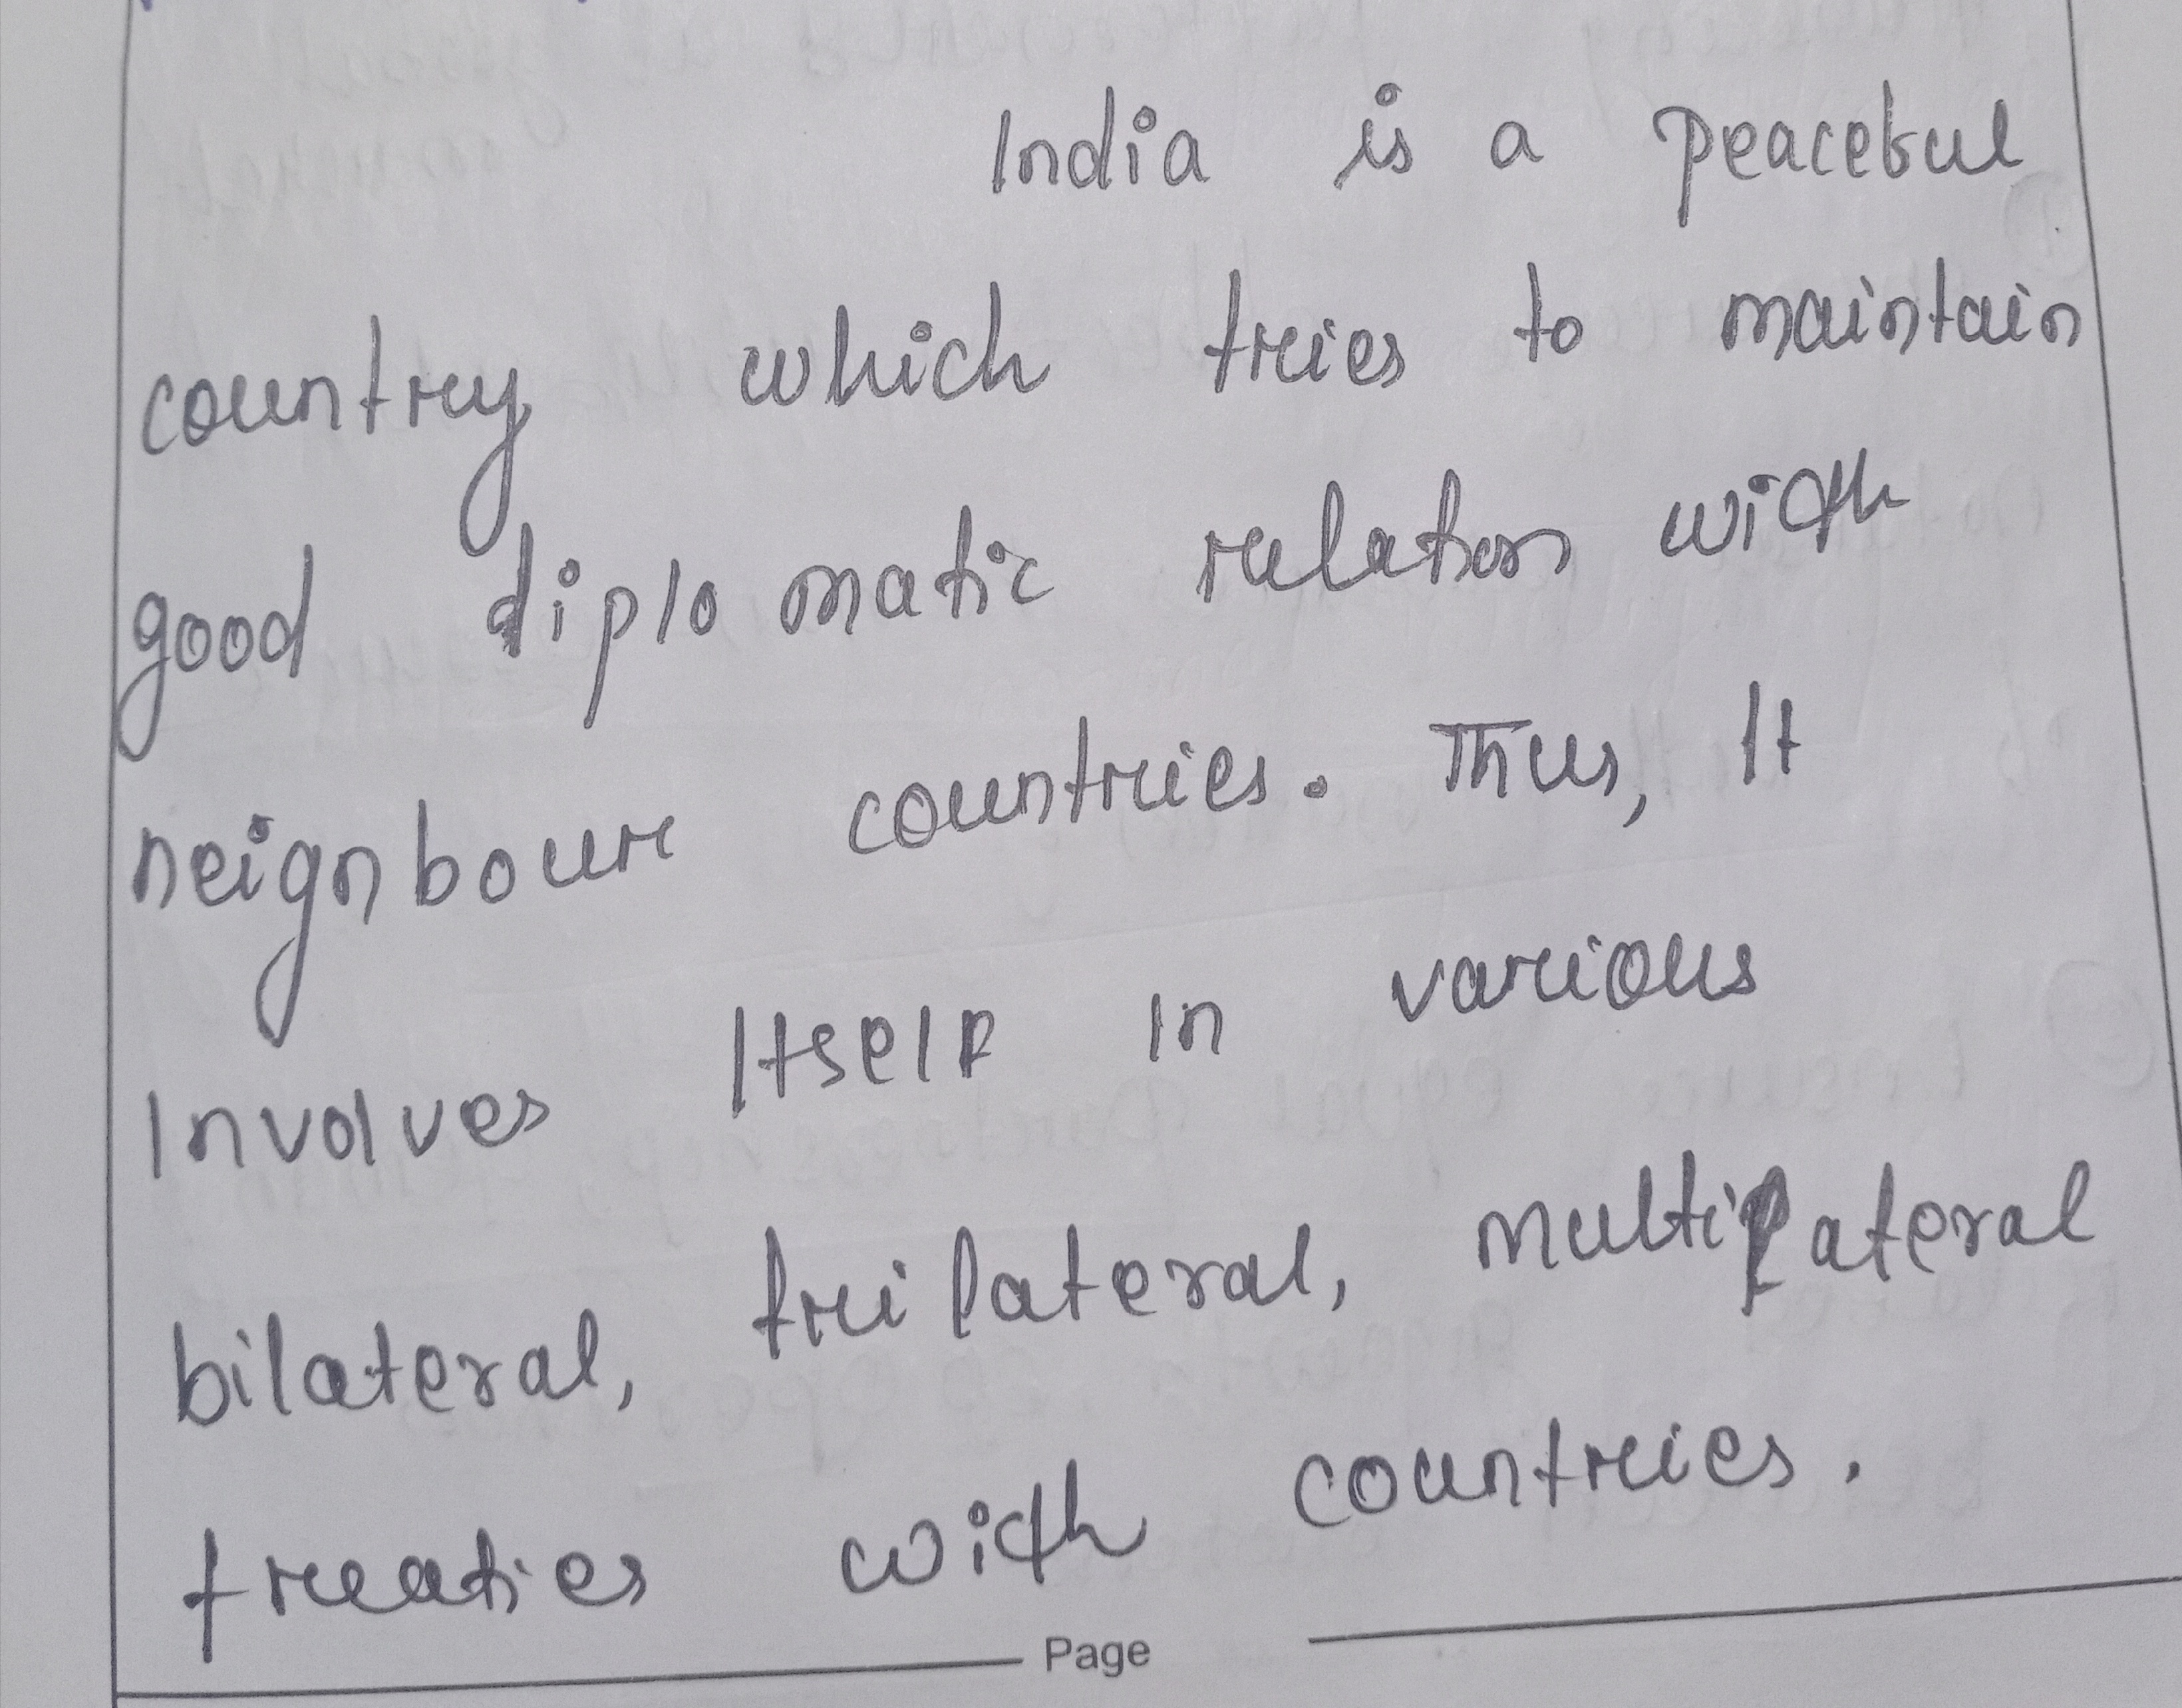 India is a peaceful
country which tries to maintain
good diplomatic relation with
neignbour countries. Thus, It
Involves Itself In various
bilateral, trilateral, multilateral
treaties with countries.
Page